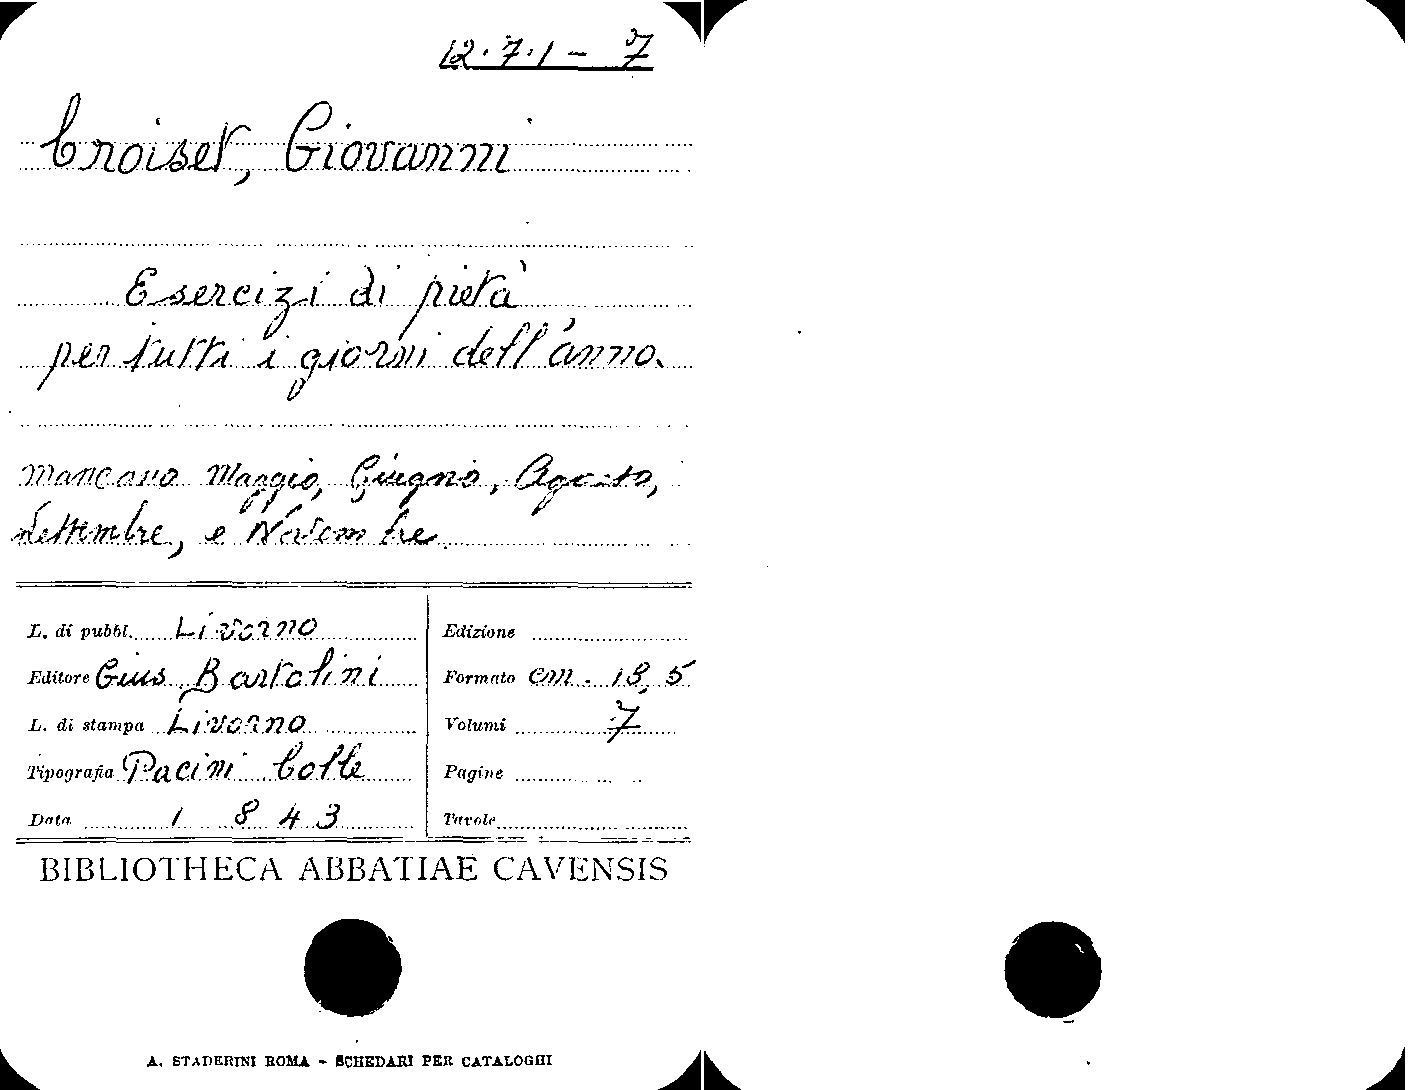 12.7.1 - 7
Croiset, Giovanni
Esercizi di pietà
per tutti i giorni dell'anno.
Mancano Maggio, Giugno, Agosto,
Settembre, e Novembre.
L. di pubbl. Livorno
Editore Gius Bartolini
L. di stampa Livorno
Tipografia Pacini Colle
Data 1843
Edizione
Formato cm. 18,5
Volumi 7
Pagine
Tavole
BIBLIOTHECA ABBATIAE CAVENSIS
A. STADERINI ROMA - SCHEDARI PER CATALOGHI